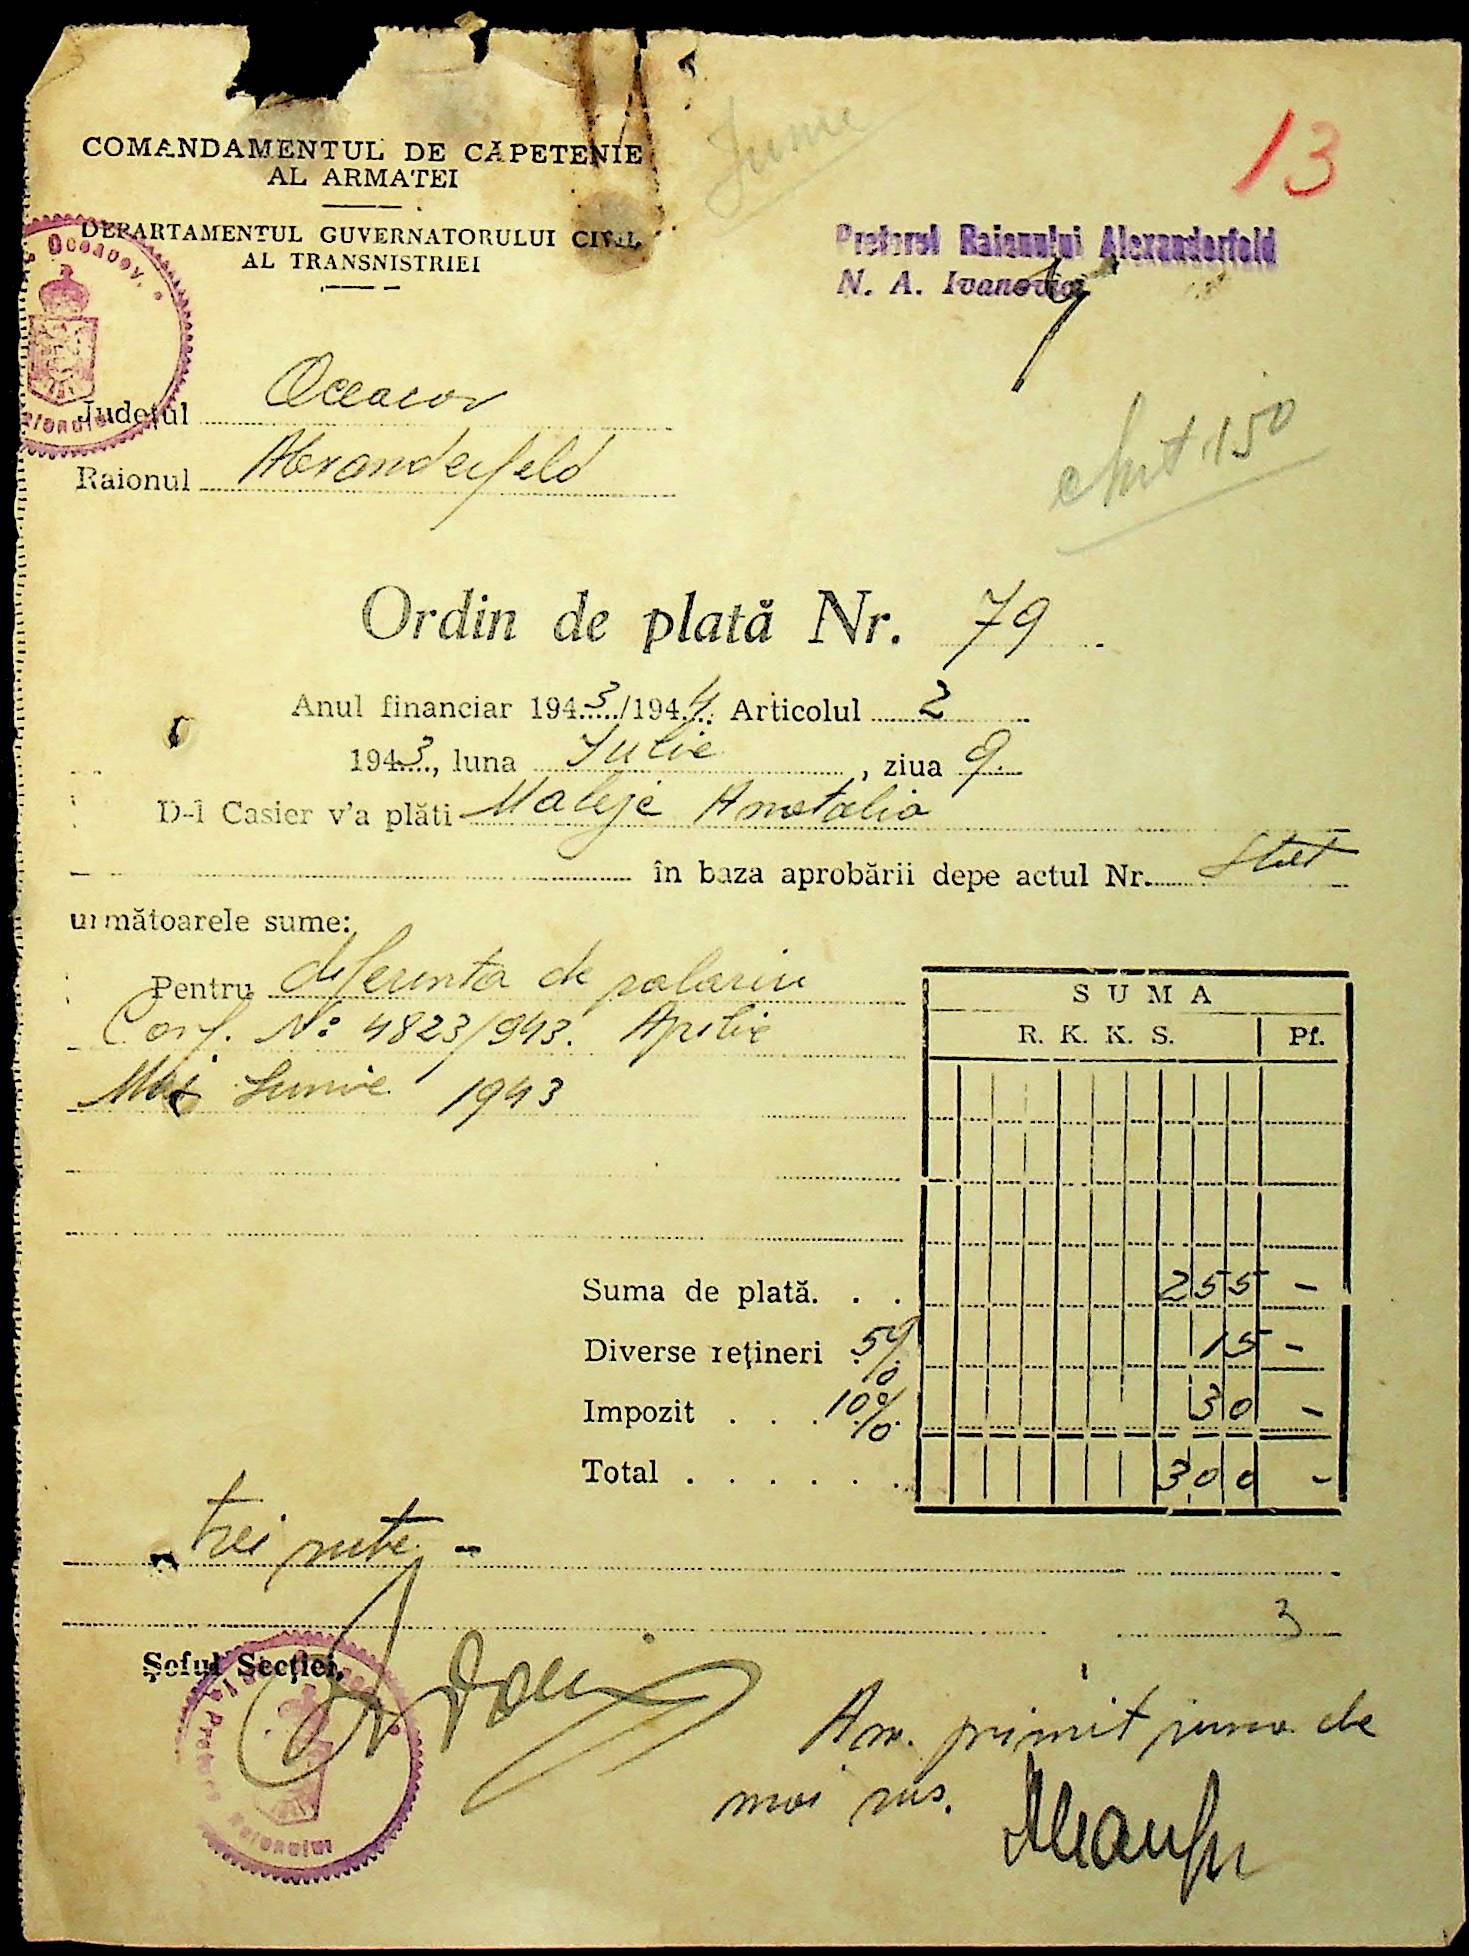 COMANDAMENTUL DE CAPETENIE
AL ARMATEI
Iunie
13
DEPARTAMENTUL GUVERNATORULUI CIVIL
AL TRANSNISTRIEI
Pretorul Raionului Alexanderfeld
N. A. Ivanovici
Oceacov
Județul Oceacov
Raionului
Raionul Alexanderfeld
150
Ordin de plată Nr. 79
Anul financiar 1943/1944 Articolul 2
1943, luna Iulie, ziua 9.
D-l Casier v'a plăti Anatolia
în baza aprobării depe actul Nr. Stat
următoarele sume:
Pentru diferenta de salariu
Conf. No 4823/943. Aprilie
Mai Iunie 1943
SUMA
R. K. K. S. Pf.
Suma de plată. . . 255 -
Diverse rețineri 5% 15 -
Impozit . . . 10% 30 -
Total . . . . . . 300 -
trei sute -
3
Șeful Secției,
Pretura Raionului
Am primit suma de
mai sus.